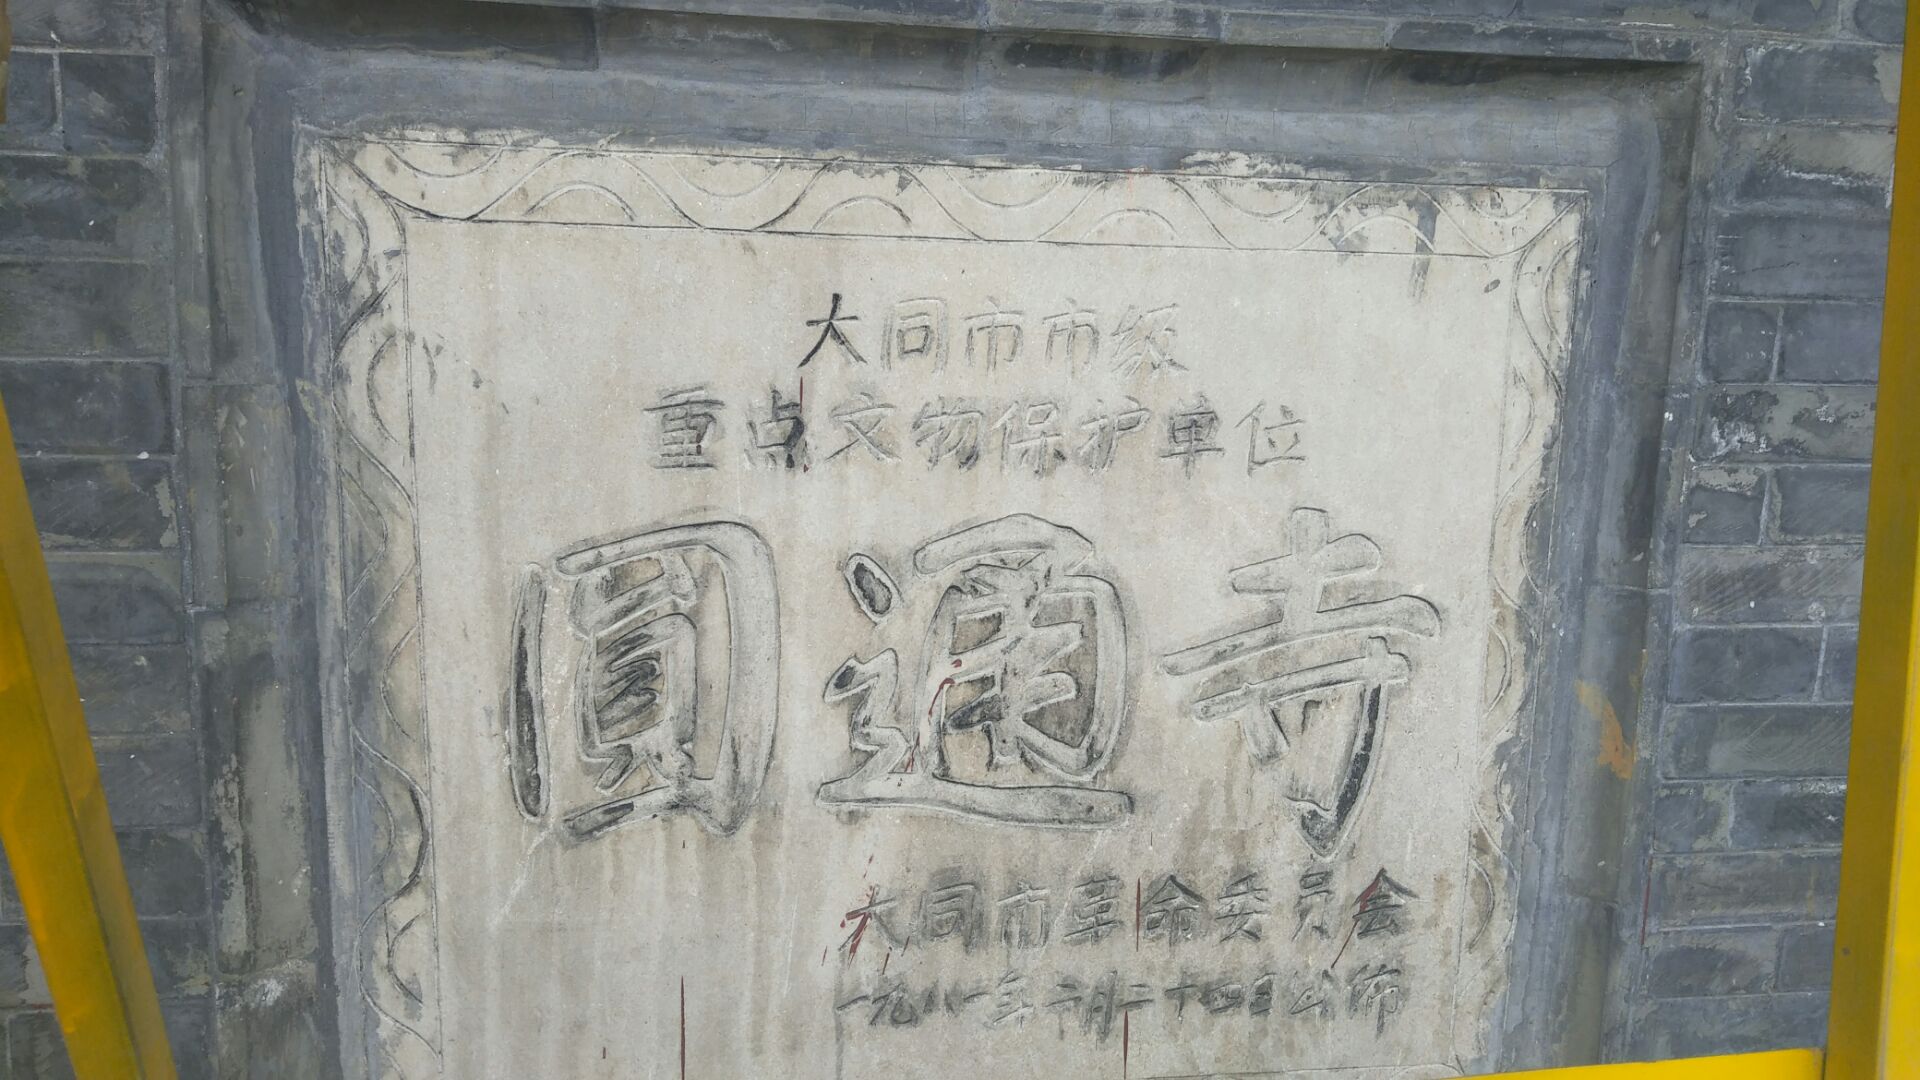 大同市市级
重点文物保护单位
圓通寺
大同市革命委员会
一九八一年二月二十四日公佈